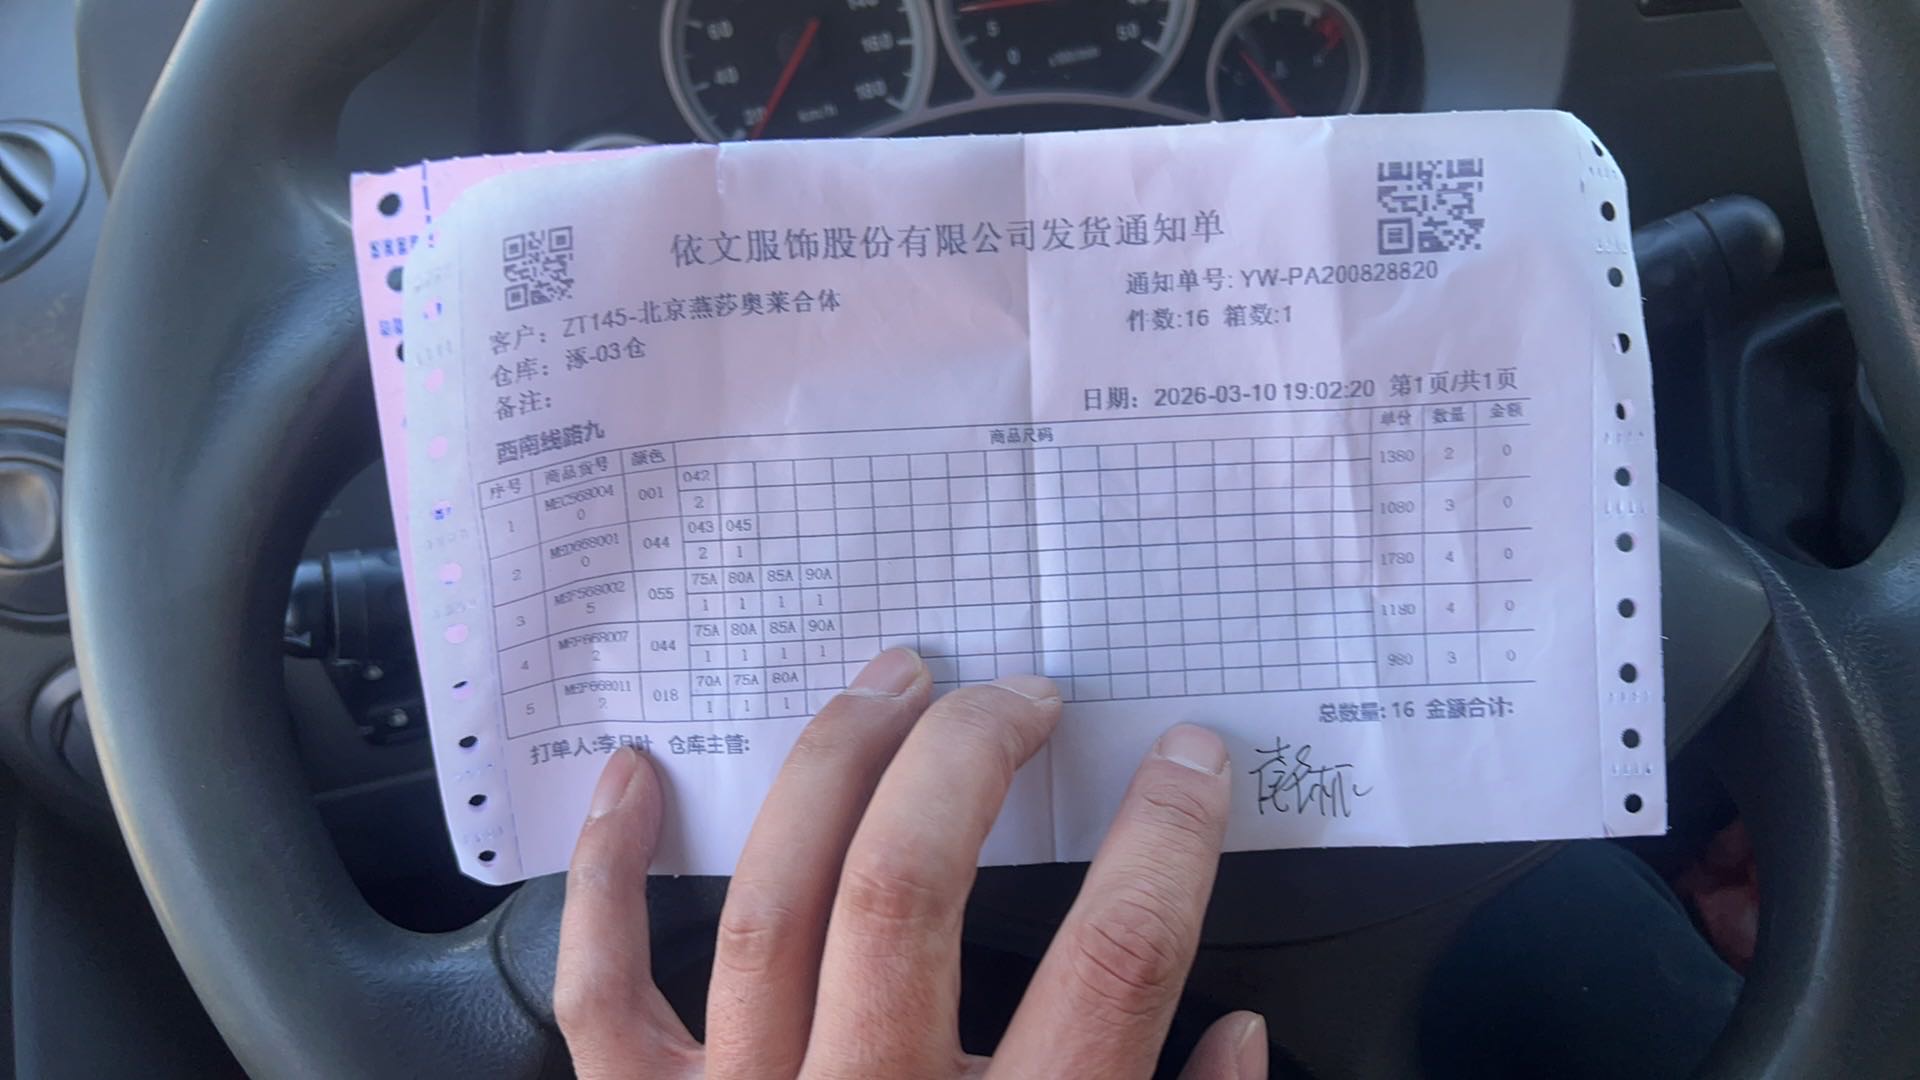 依文服饰股份有限公司发货通知单
通知单号: YW-PA200828820
客户: ZT145-北京燕莎奥莱合体
件数:16 箱数:1
仓库: 涿-03仓
备注:
日期: 2026-03-10 19:02:20 第1页/共1页
西南线路九
序号 商品货号 颜色 商品尺码 单价 数量 金额
1 MEC5680040 001 042 1380 2 0
2
2 MED6680010 044 043 045 1080 3 0
2 1
3 MEF5680025 055 75A 80A 85A 90A 1780 4 0
1 1 1 1
4 MEF6680072 044 75A 80A 85A 90A 1180 4 0
1 1 1 1
5 MEF6680112 018 70A 75A 80A 980 3 0
1 1 1
总数量: 16 金额合计:
打单人:李月叶 仓库主管: